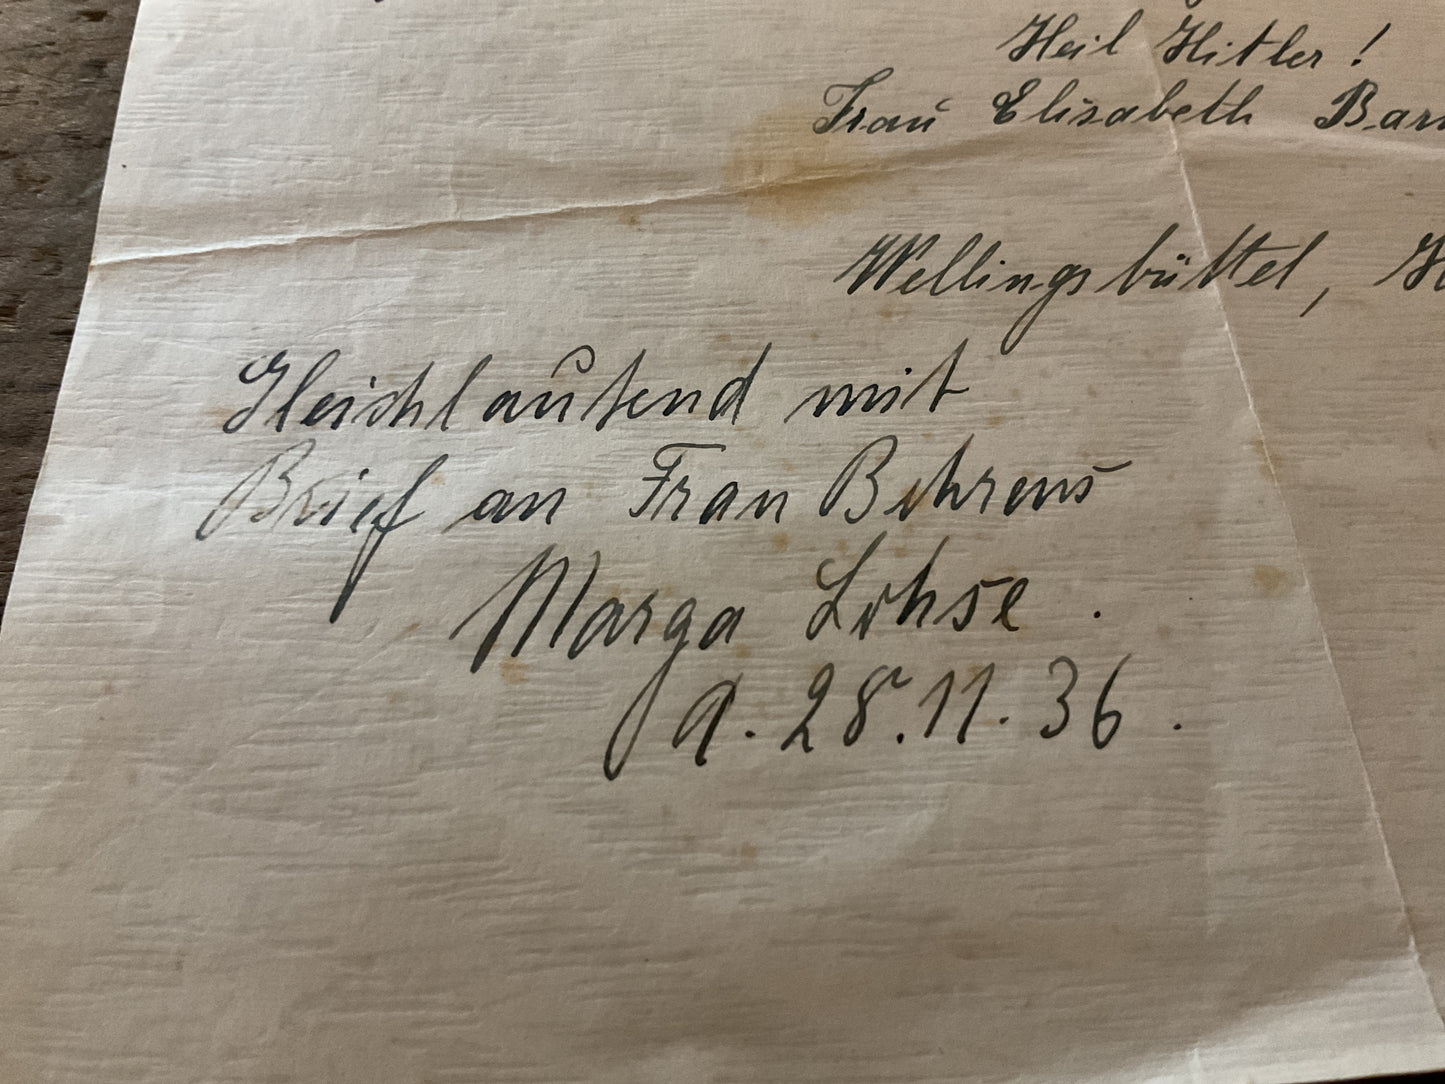 Heil Hitler!
Frau Elisabeth
Wellingsbüttel,
Gleichlautend mit
Brief an Frau Behrens
Marga Lohse.
d. 28.11.36.